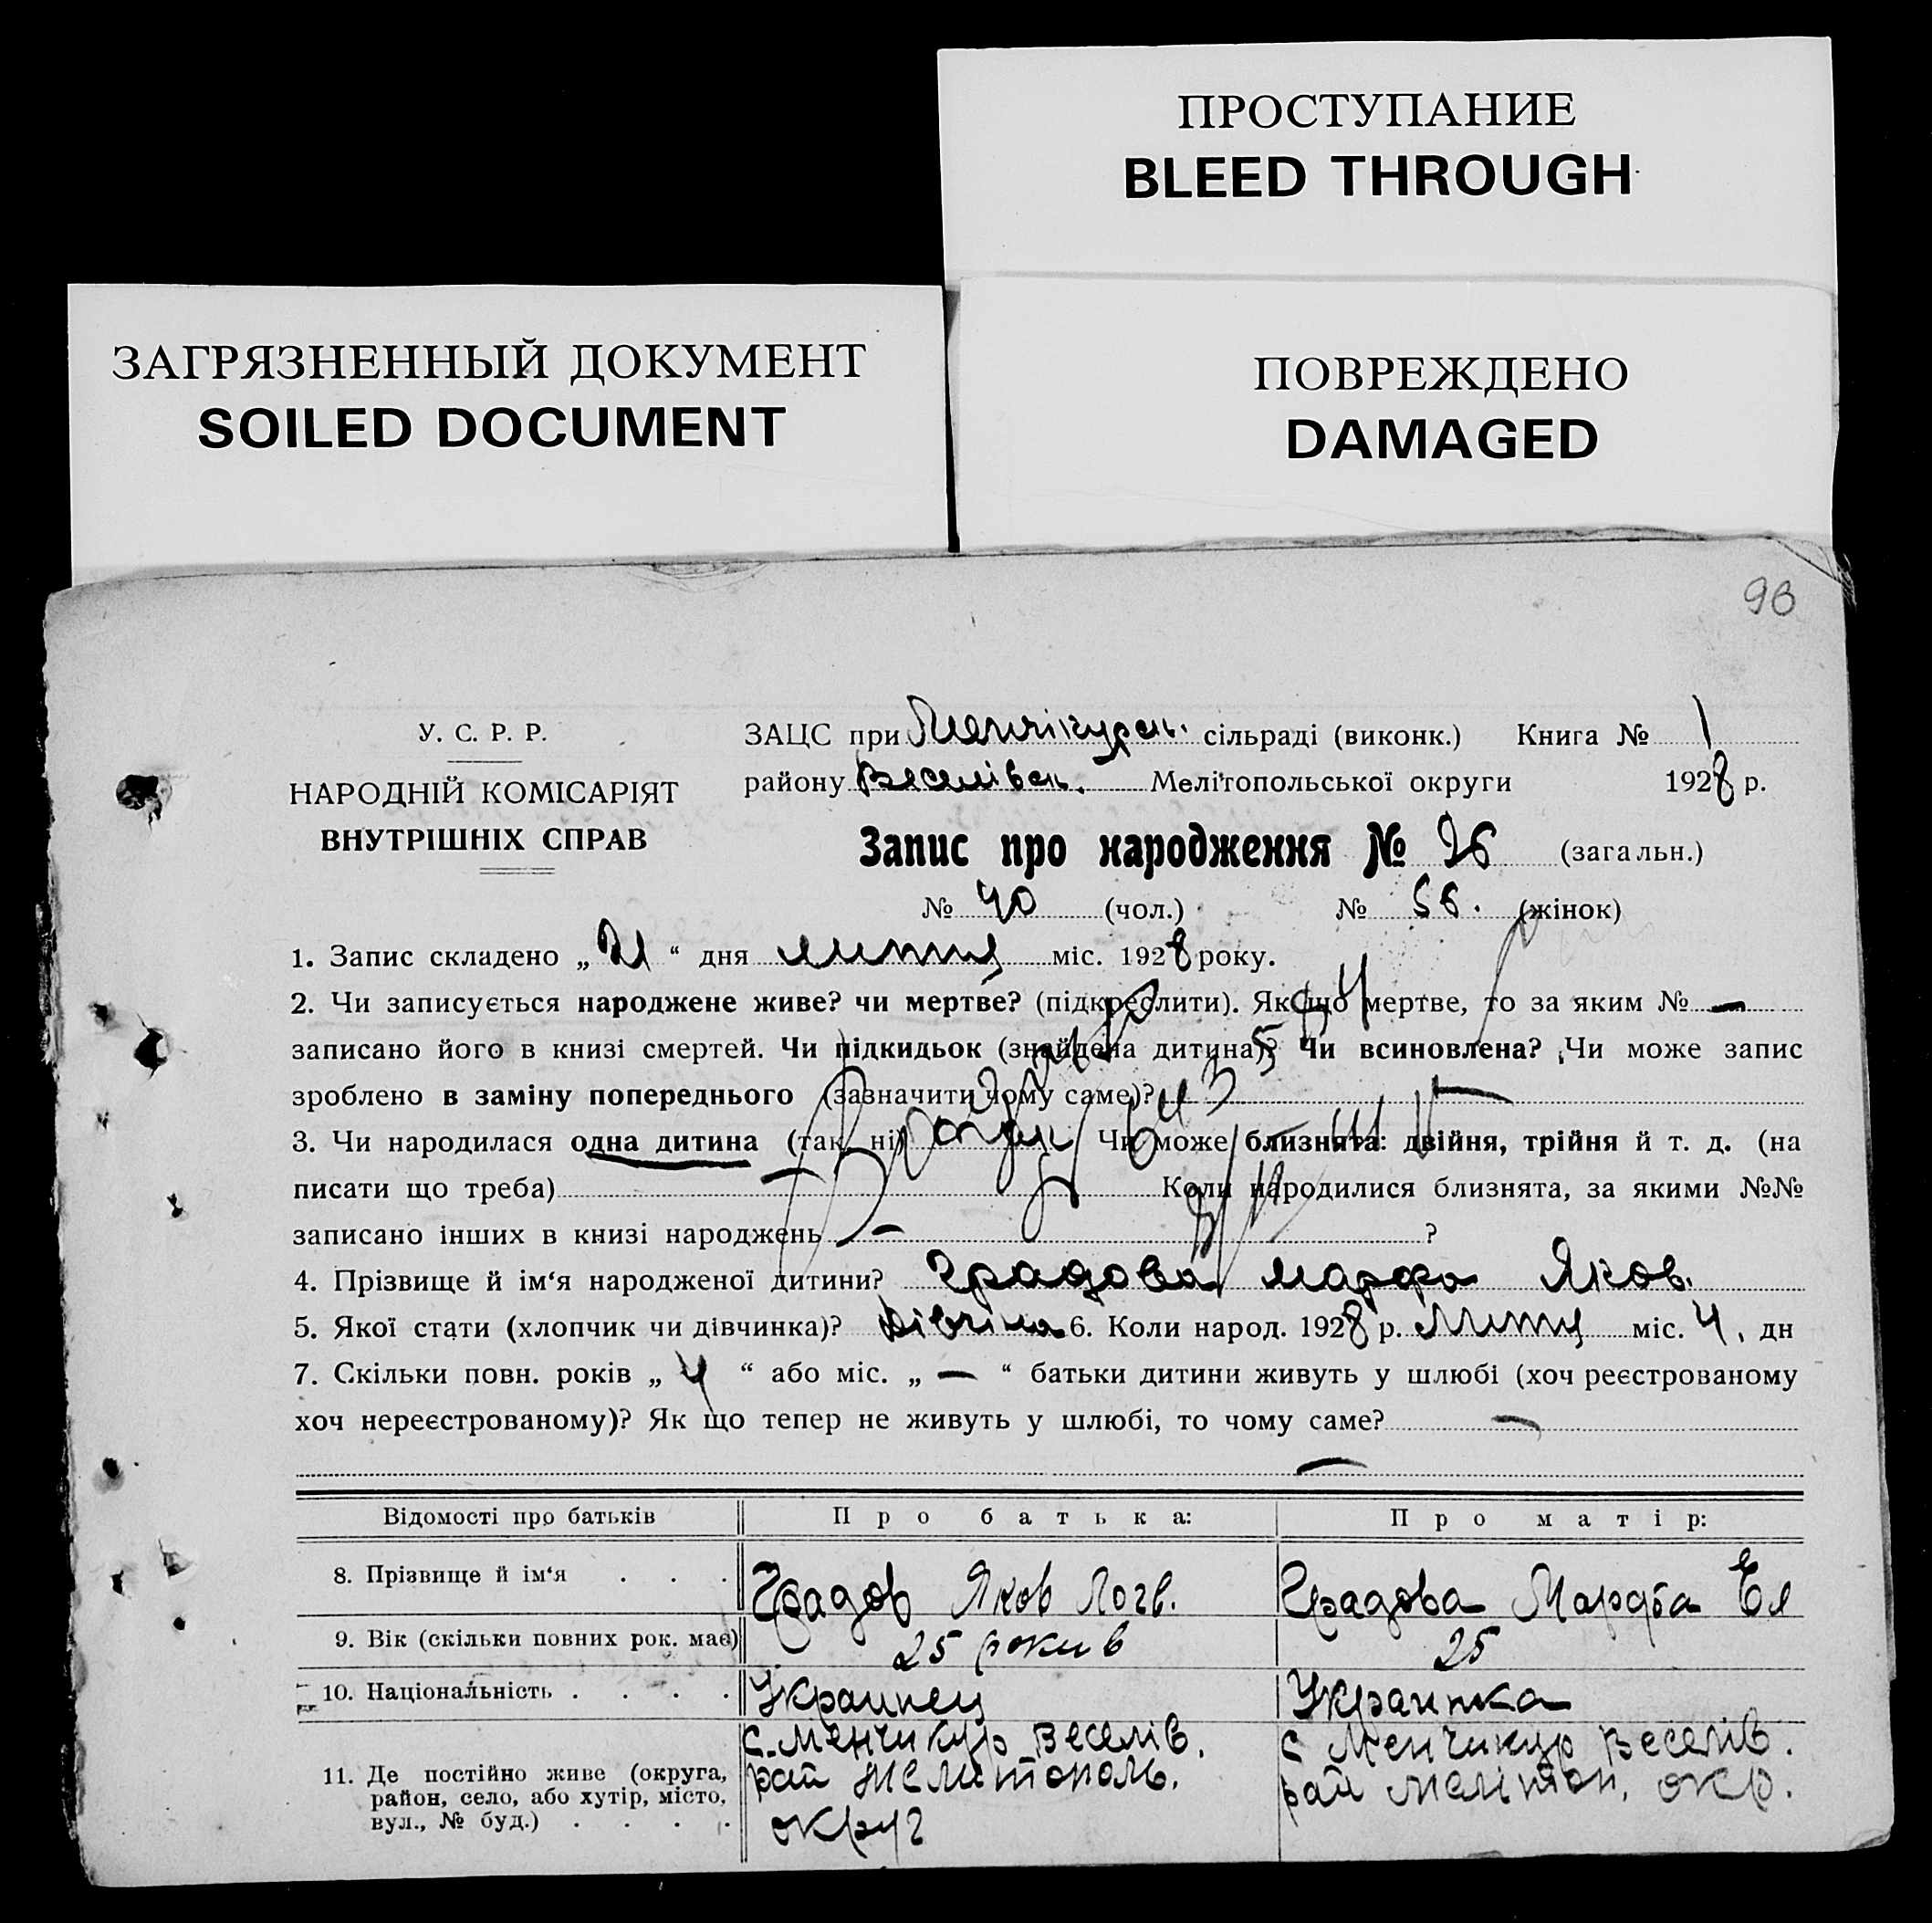 ПРОСТУПАНИЕ
BLEED THROUGH
ЗАГРЯЗНЕННЫЙ ДОКУМЕНТ
SOILED DOCUMENT
ПОВРЕЖДЕНО
DAMAGED
У. С. Р. Р.
НАРОДНІЙ КОМІСАРІЯТ
ВНУТРІШНІХ СПРАВ
ЗАЦС при Менчікурськ. сільраді (виконк.) Книга № 1
району Веселівськ. Мелітопольської округи 1928 р.
Запис про народження № 96 (загальн.)
№ 40 (чол.) № 56. (жінок)
1. Запис складено „ “ дня міс. 1928 року.
2. Чи записується народжене живе? чи мертве? (підкреслити). Як що мертве, то за яким № —
записано його в книзі смертей. Чи підкидьок (знайдена дитина)? Чи всиновлена? Чи може запис
зроблено в заміну попереднього (зазначити чому саме)? —
3. Чи народилася одна дитина (так, ні) Чи може близнята: двійня, трійня й т. д. (на
писати що треба) Коли народилися близнята, за якими №№
записано інших в книзі народжень — ?
4. Прізвище й ім‘я народженої дитини? Градова Марфа Яков.
5. Якої стати (хлопчик чи дівчинка)? Дівчіна 6. Коли народ. 1928 р. міс. 4. дн
7. Скільки повн. років „ 4 “ або міс. „ — “ батьки дитини живуть у шлюбі (хоч реєстрованому
хоч нереєстрованому)? Як що тепер не живуть у шлюбі, то чому саме? —
—
Відомості про батьків Про батька: Про матір:
8. Прізвище й ім‘я . . . Градов Яков Логв. Градова Марфа Ел
9. Вік (скільки повних рок. має) 25 роки в 25
10. Національність . . . . Украинец Украинка
11. Де постійно живе (округа, район, село, або хутір, місто, вул., № буд.) . . . .
с. Менчикур Веселів.
рай Мелитополь.
округ
с Менчикур Веселів.
рай Меліт​оп. окр.